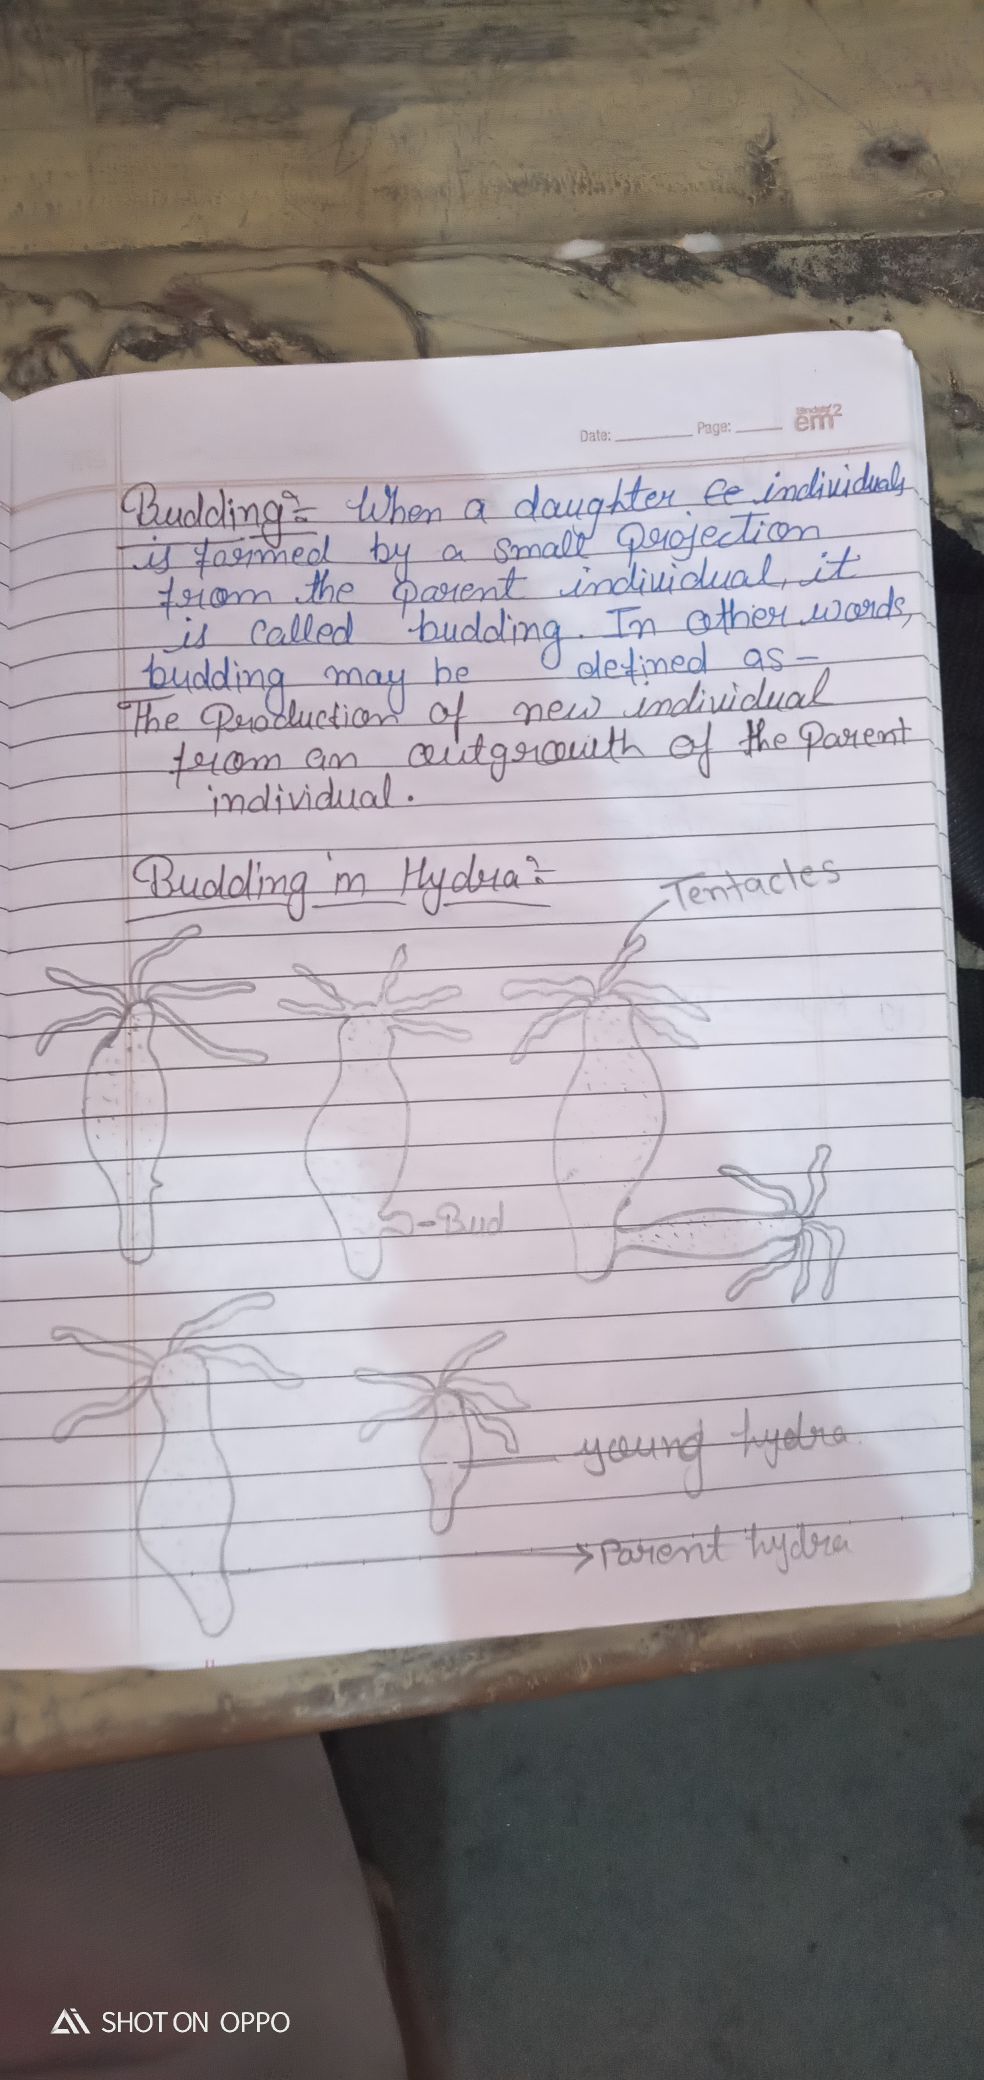 Date: ________ Page: _____
em2
Budding:- When a daughter ce individuals
is formed by a small projection
from the parent individual, it
is called budding. In other words,
budding may be defined as-
The Production of new individual
from an outgrowth of the Parent
individual.
Budding in Hydra:-
Tentacles
-Bud
young hydra
Parent hydra
SHOT ON OPPO